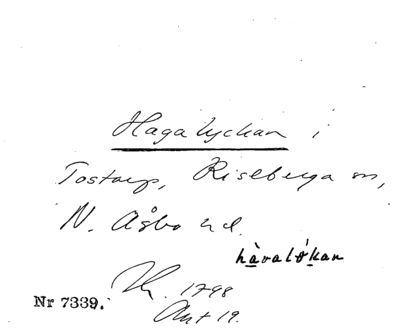 Hagalyckan i
Tostarp, Riseberga sn,
N. Åsbo hd.
hàvalókan
1798
Akt 19.
Nr 7339.